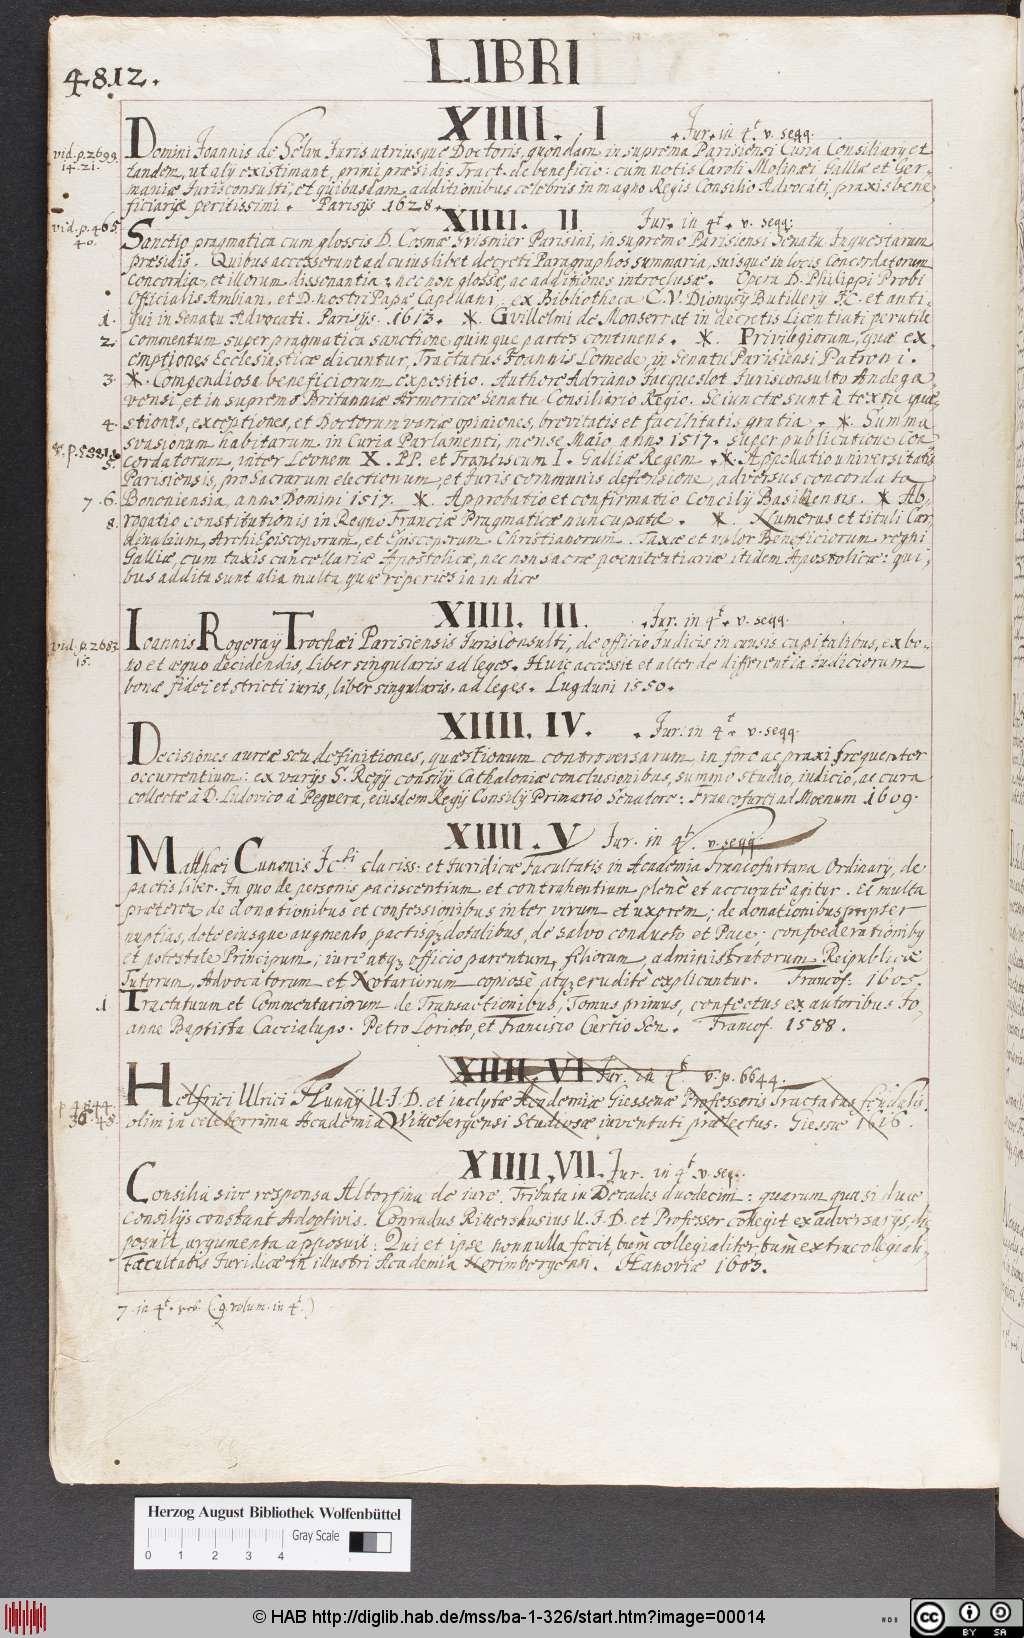 4812.
LIBRI
XIIII. I Jur. in 4t. v. seqq.
vid. p. 2699.
14. 21.
Domini Joannis de Selva Juris utriusque Doctoris, quondam in suprema Parisiensi Curia Consiliarij et
tandem, ut alij existimant, primi præsidis Tract. de beneficio: cum notis Caroli Molinæi Galliæ et Ger-
maniæ Jurisconsulti, et quibusdam additionibus celebris in magno Regis Consilio Advocati, praxis bene-
ficiariæ peritissimi. Parisijs 1628.
XIIII. II. Jur. in 4t. v. seqq.
vid. p. 465.
40.
Sanctio pragmatica cum glossis D. Cosmæ Guismier Parisini, in supremo Parisiensi Senatu Inquestarum
præsidis. Quibus accesserunt ad cuiuslibet decreti Paragraphos summaria, suisque in locis Concordatorum
concordia, et illorum dissonantia: nec non glossæ, ac additiones introclusæ. Opera D. Philippi Probi
Officialis Ambian. et D. nostri Papæ Capellani, ex Bibliotheca C. V. Dionysij Butillery JC. et anti-
1. qui in Senatu Advocati. Parisijs. 1613. * Guillelmi de Monserrat in decretis Licentiati perutile
2. commentum super pragmatica sanctione quinque partes continens. * Privilegiorum, quæ ex-
emptiones Ecclesiasticæ dicuntur, Tractatus Joannis Lomede, in Senatu Parisiensi Patroni.
3. * Compendiosa beneficiorum expositio. Authore Adriano Jacqueslot Jurisconsulto Andega-
vensi, et in supremo Britanniæ Armoricæ Senatu Consiliario Regio. Seiunctæ sunt à textu quæ-
4. stiones, exceptiones, et Doctorum variæ opiniones, brevitatis et facilitatis gratia. * Summa
svasionum habitarum in Curia Parlamenti, mense Maio anno 1517. super publicatione con-
5. cordatorum, inter Leonem X. PP. et Franciscum I. Galliæ Regem. * Appellatio universitatis
Parisiensis, pro sacrarum electionum, et Juris communis defensione, adversus concordata
7. 6. Bononiensia, anno Domini 1517. * Approbatio et confirmatio Concilij Basiliensis. * Ab-
8. rogatio constitutionis in Regno Franciæ Pragmaticæ nuncupatæ. * Numerus et tituli Car-
dinalaium, ArchiEpiscoporum, et Episcoporum Christianorum. Taxæ et valor Beneficiorum regni
Galliæ, cum taxis cancellariæ Apostolicæ, nec non sacræ poenitentiariæ itidem Apostolicæ: qui-
bus addita sunt alia multa, quæ reperies in indice
XIIII. III. Jur. in 4t. v. seqq.
vid. p. 2683.
15.
Ioannis Rogeraij Trochæi Parisiensis JurisConsulti, de officio Judicis in causis capitalibus, ex bo-
no et æquo decidendis, Liber singularis ad leges. Huic accessit et alter de differentia Judiciorum
bonæ fidei et stricti iuris, liber singularis. ad leges. Lugduni 1550.
XIIII. IV. Jur. in 4t. v. seqq.
Decisiones aureæ seu definitiones, quæstionum controversarum, in foro ac praxi frequenter
occurrentium: ex varijs S. Regij consilij Cathaloniæ conclusionibus, summo studio, iudicio, ac cura
collectæ à D. Ludovico à Peguera, eiusdem Regij Consilij Primario Senatore: Francofurti ad Moenum 1609.
XIIII. V Jur. in 4t. v. seqq.
Matthæi Cunonis JCti clariss. et Juridicæ Facultatis in Academia Francofurtana Ordinarij, de
pactis liber. In quo de personis paciscentium et contrahentium plenè et accuratè agitur. Et multa
præterea de donationibus et confessionibus inter virum et uxorem; de donationibus propter
nuptias, dote eiusque augmento, pactisq; dotalibus, de salvo conducto et Pace, confoederationib9
et potestate Principum, iure atq; officio parentum, filiorum, administratorum Reipublicæ
Tutorum, Advocatorum et Notariorum copiosè atq; eruditè explicantur. Francof. 1605.
.1 Tractatuum et Commentariorum de Transactionibus, Tomus primus, confectus ex autoribus Jo-
anne Baptista Caccialupo. Petro Lorioto, et Francisco Curtio Sen. Francof. 1588.
XIIII. VI Jur. in 4t. v. p. 6644.
Helfrici Ulrici Hunnij U.J.D. et inclytæ Academiæ Giessenæ Professoris Tractatus feudalis
olim in celeberrima Academia Wittebergensi Studiosæ iuventuti prælectus. Giessæ 1616.
XIIII. VII. Jur. in 4t. v. seq.
Consilia sive responsa Altorfina de iure. Tributa in Decades duodecim: quarum quasi duce
consilijs constant Adoptivis. Conradus Rittershusius U.J.D. et Professor collegit ex adversarijs,
posuit, argumenta apposuit: Qui et ipse nonnulla fecit, tum collegialiter, tum extracollegiali-
Facultatis Juridicæ in illustri Academia Norimbergensi. Hanoviæ 1603.
7. in 4t. reb. (9. volum. in 4t.)
Herzog August Bibliothek Wolfenbüttel
Gray Scale
0 1 2 3 4
© HAB http://diglib.hab.de/mss/ba-1-326/start.htm?image=00014
WDB
cc BY SA